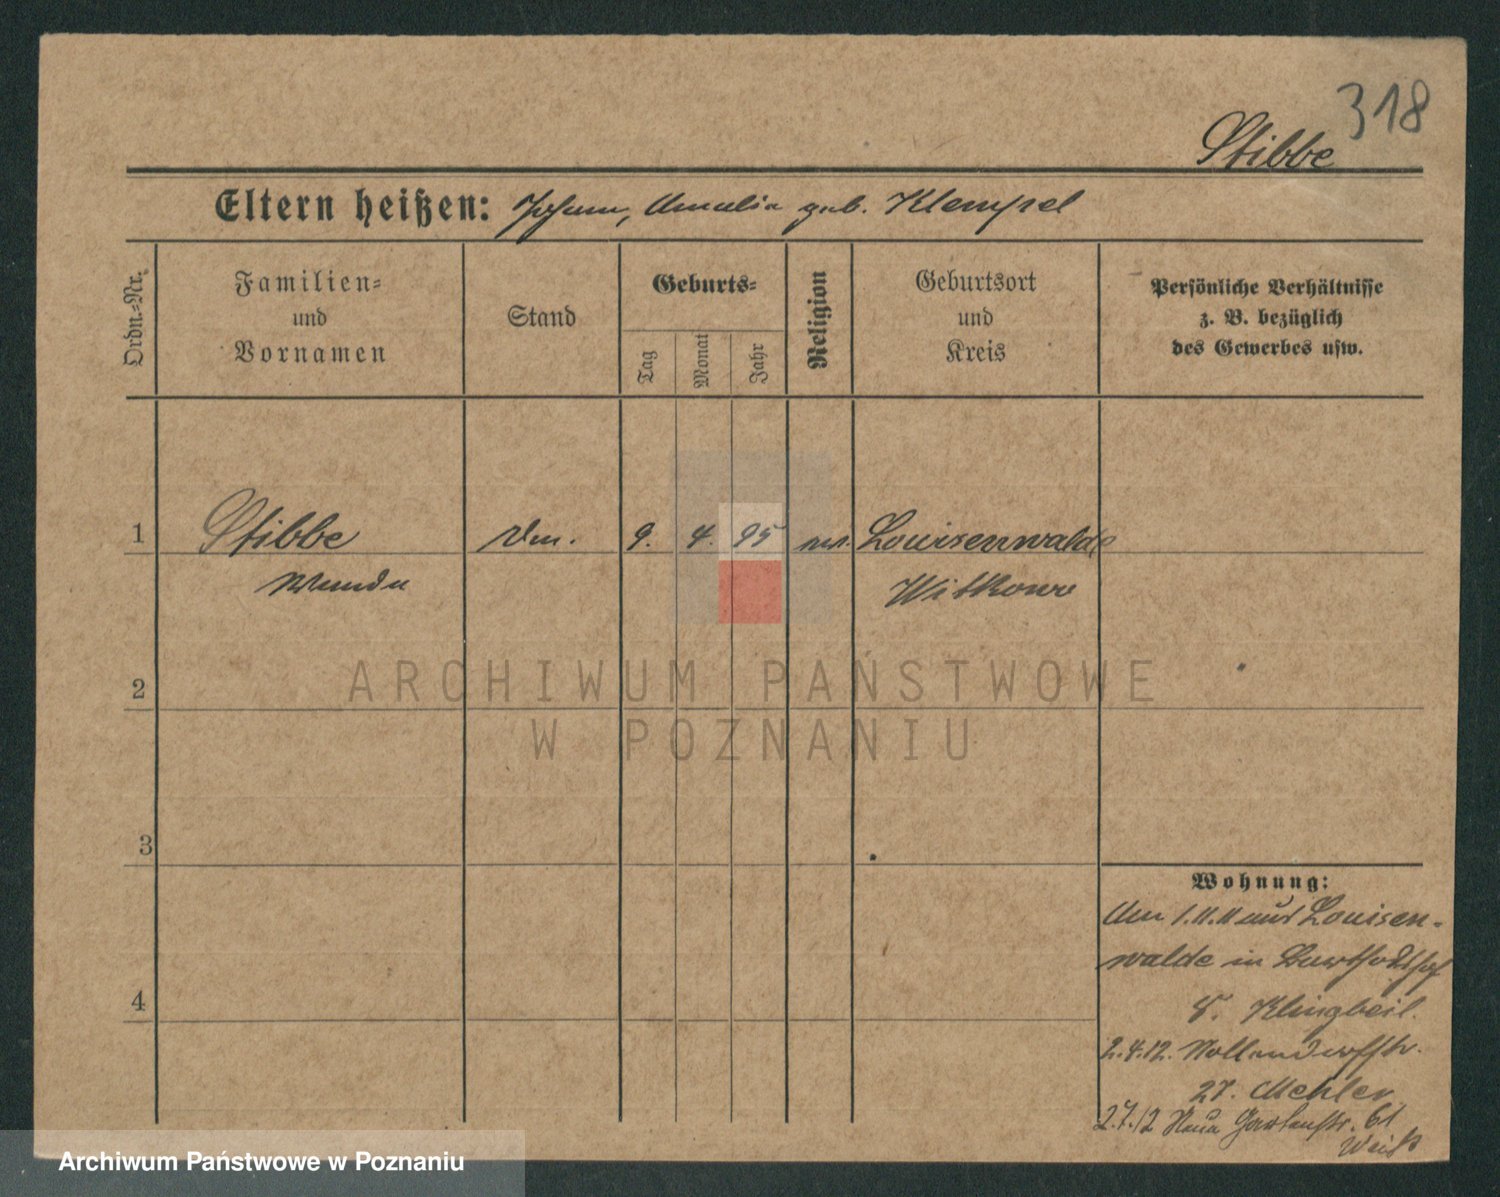 318
Stibbe
Eltern heißen: Johann, Amalia geb. Klempel
Ordn.-Nr.
Familien-
und
Vornamen
Stand
Geburts-
Tag
Monat
Jahr
Religion
Geburtsort
und
Kreis
Persönliche Verhältnisse
z. B. bezüglich
des Gewerbes usw.
1
Stibbe
Wanda
9. 4. 95
Louisenwalde
Witkowo
2
ARCHIWUM PAŃSTWOWE
W POZNANIU
3
Wohnung:
Am 1.11.11 aus Louisen-
walde in
8. Klingbeil.
4
2.4.12. Nollendorfstr.
27. Mehler
2.7.12 Neue Gartenstr. 61
Weiß
Archiwum Państwowe w Poznaniu